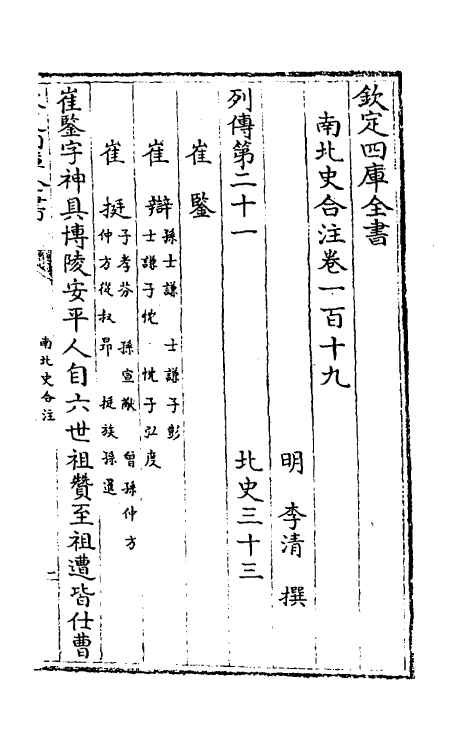 欽定四庫全書
南北史合注卷一百十九
明 李清 撰
列傳第二十一 北史三十三
崔鑒
崔辯 孫士謙 士謙子彭
士謙子恱 恱子弘度
崔挺 子孝芬 孫宣猷 曾孫仲方
仲方從叔昂 挺族孫暹
崔鑒字神具博陵安平人自六世祖贊至祖遭皆仕曹
南北史合注